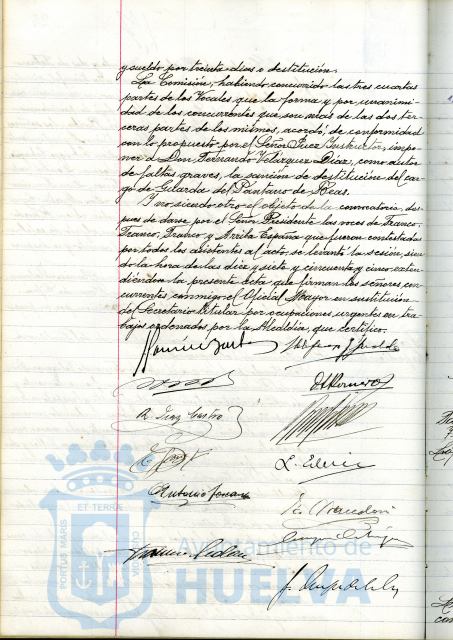 y sueldo por treinta días o destitución.
La Comisión, habiendo concurrido las tres cuartas
partes de los Vocales que la forma y por unanimi-
dad de los concurrentes que son más de las dos ter-
ceras partes de los mismos, acordó, de conformidad
con lo propuesto por el Señor Juez Instructor, impo-
ner a Don Fernando Velázquez Díaz, como autor
de faltas graves, la sanción de destitución del car-
go de Guarda del Pantano de Beas.
Y no siendo otro el objeto de la convocatoria, des-
pues de darse por el Señor Presidente las voces de Franco,
Franco, Franco y Arriba España que fueron contestadas
por todos los asistentes al acto, se levantó la sesión, sien-
do la hora de las diez y siete y cincuenta y cinco exten-
diéndose la presente acta que firman los señores con-
currentes conmigo el Oficial Mayor en sustitución
del Secretario titular por ocupaciones urgentes en tra-
bajos ordenados por la Alcaldía, que certifico.
R. Diaz Castro
Antonio
ET TERRÆ
PORTUS MARIS
Ayuntamiento de
HUELVA